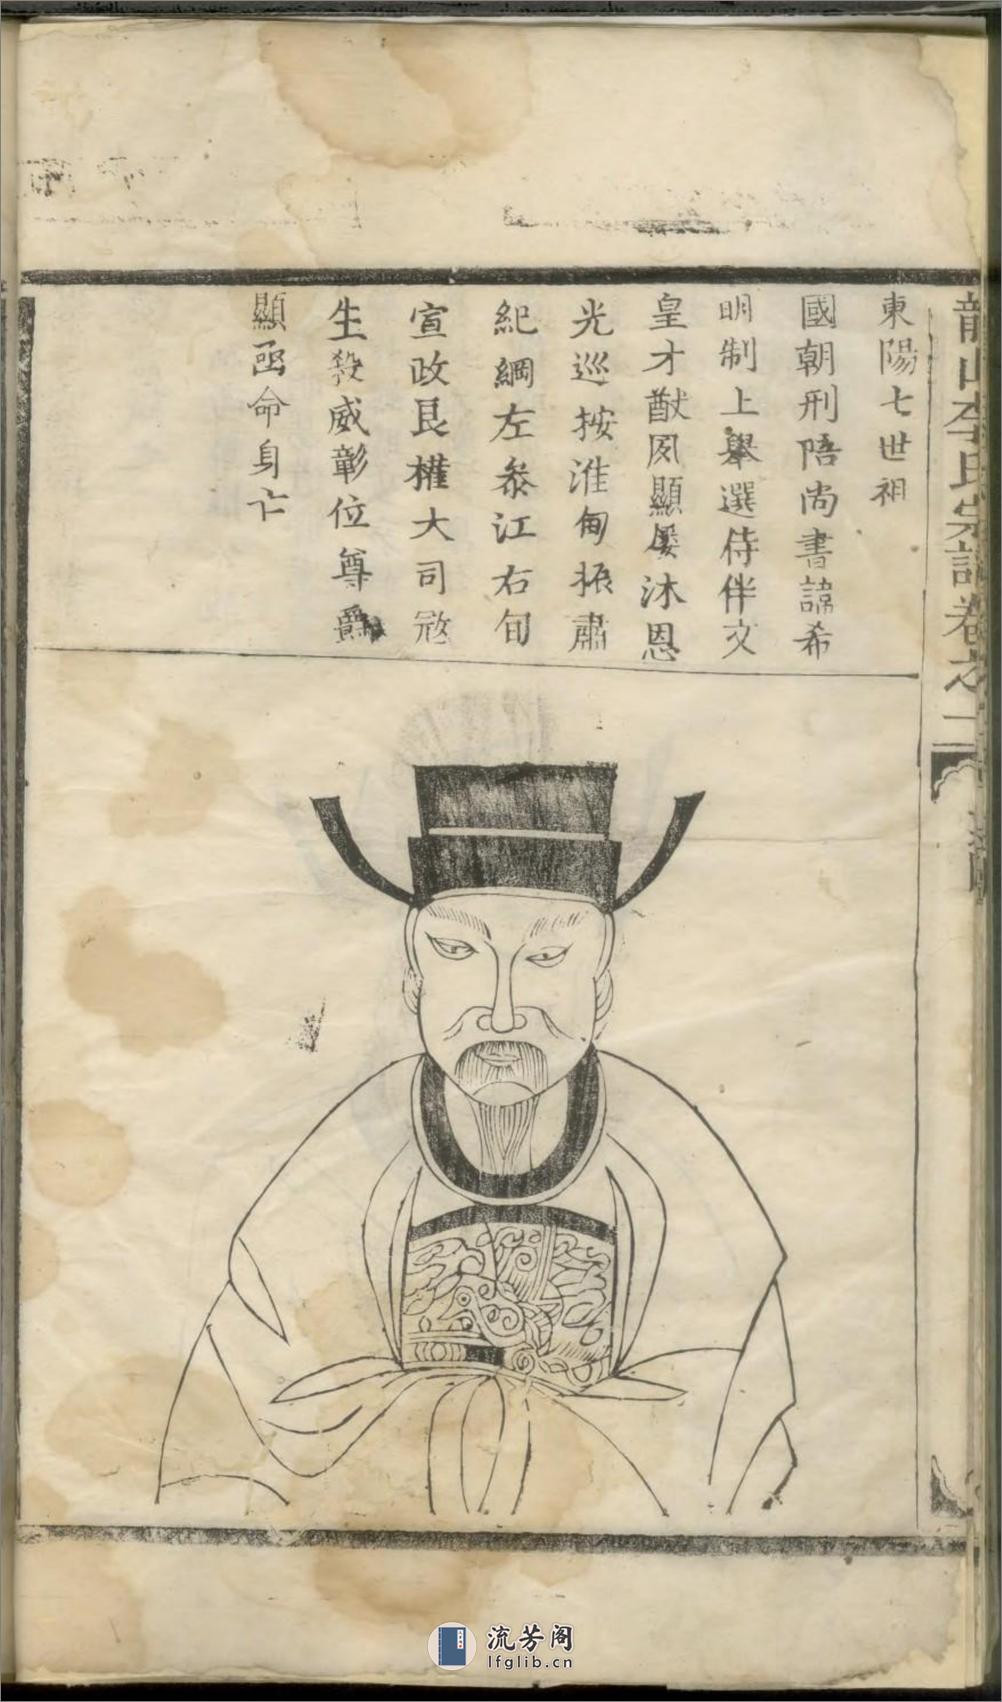 龍山李氏宗譜卷之一
東陽七世祖
國朝刑陪尚書諱希
明制上舉選侍伴文
皇才猷夙顯屢沐恩
光巡按淮甸振肅
紀綱左叅江右旬
宣政艮權大司
生殺威彰位尊爵
顯函命身亡
流芳阁
lfglib.cn